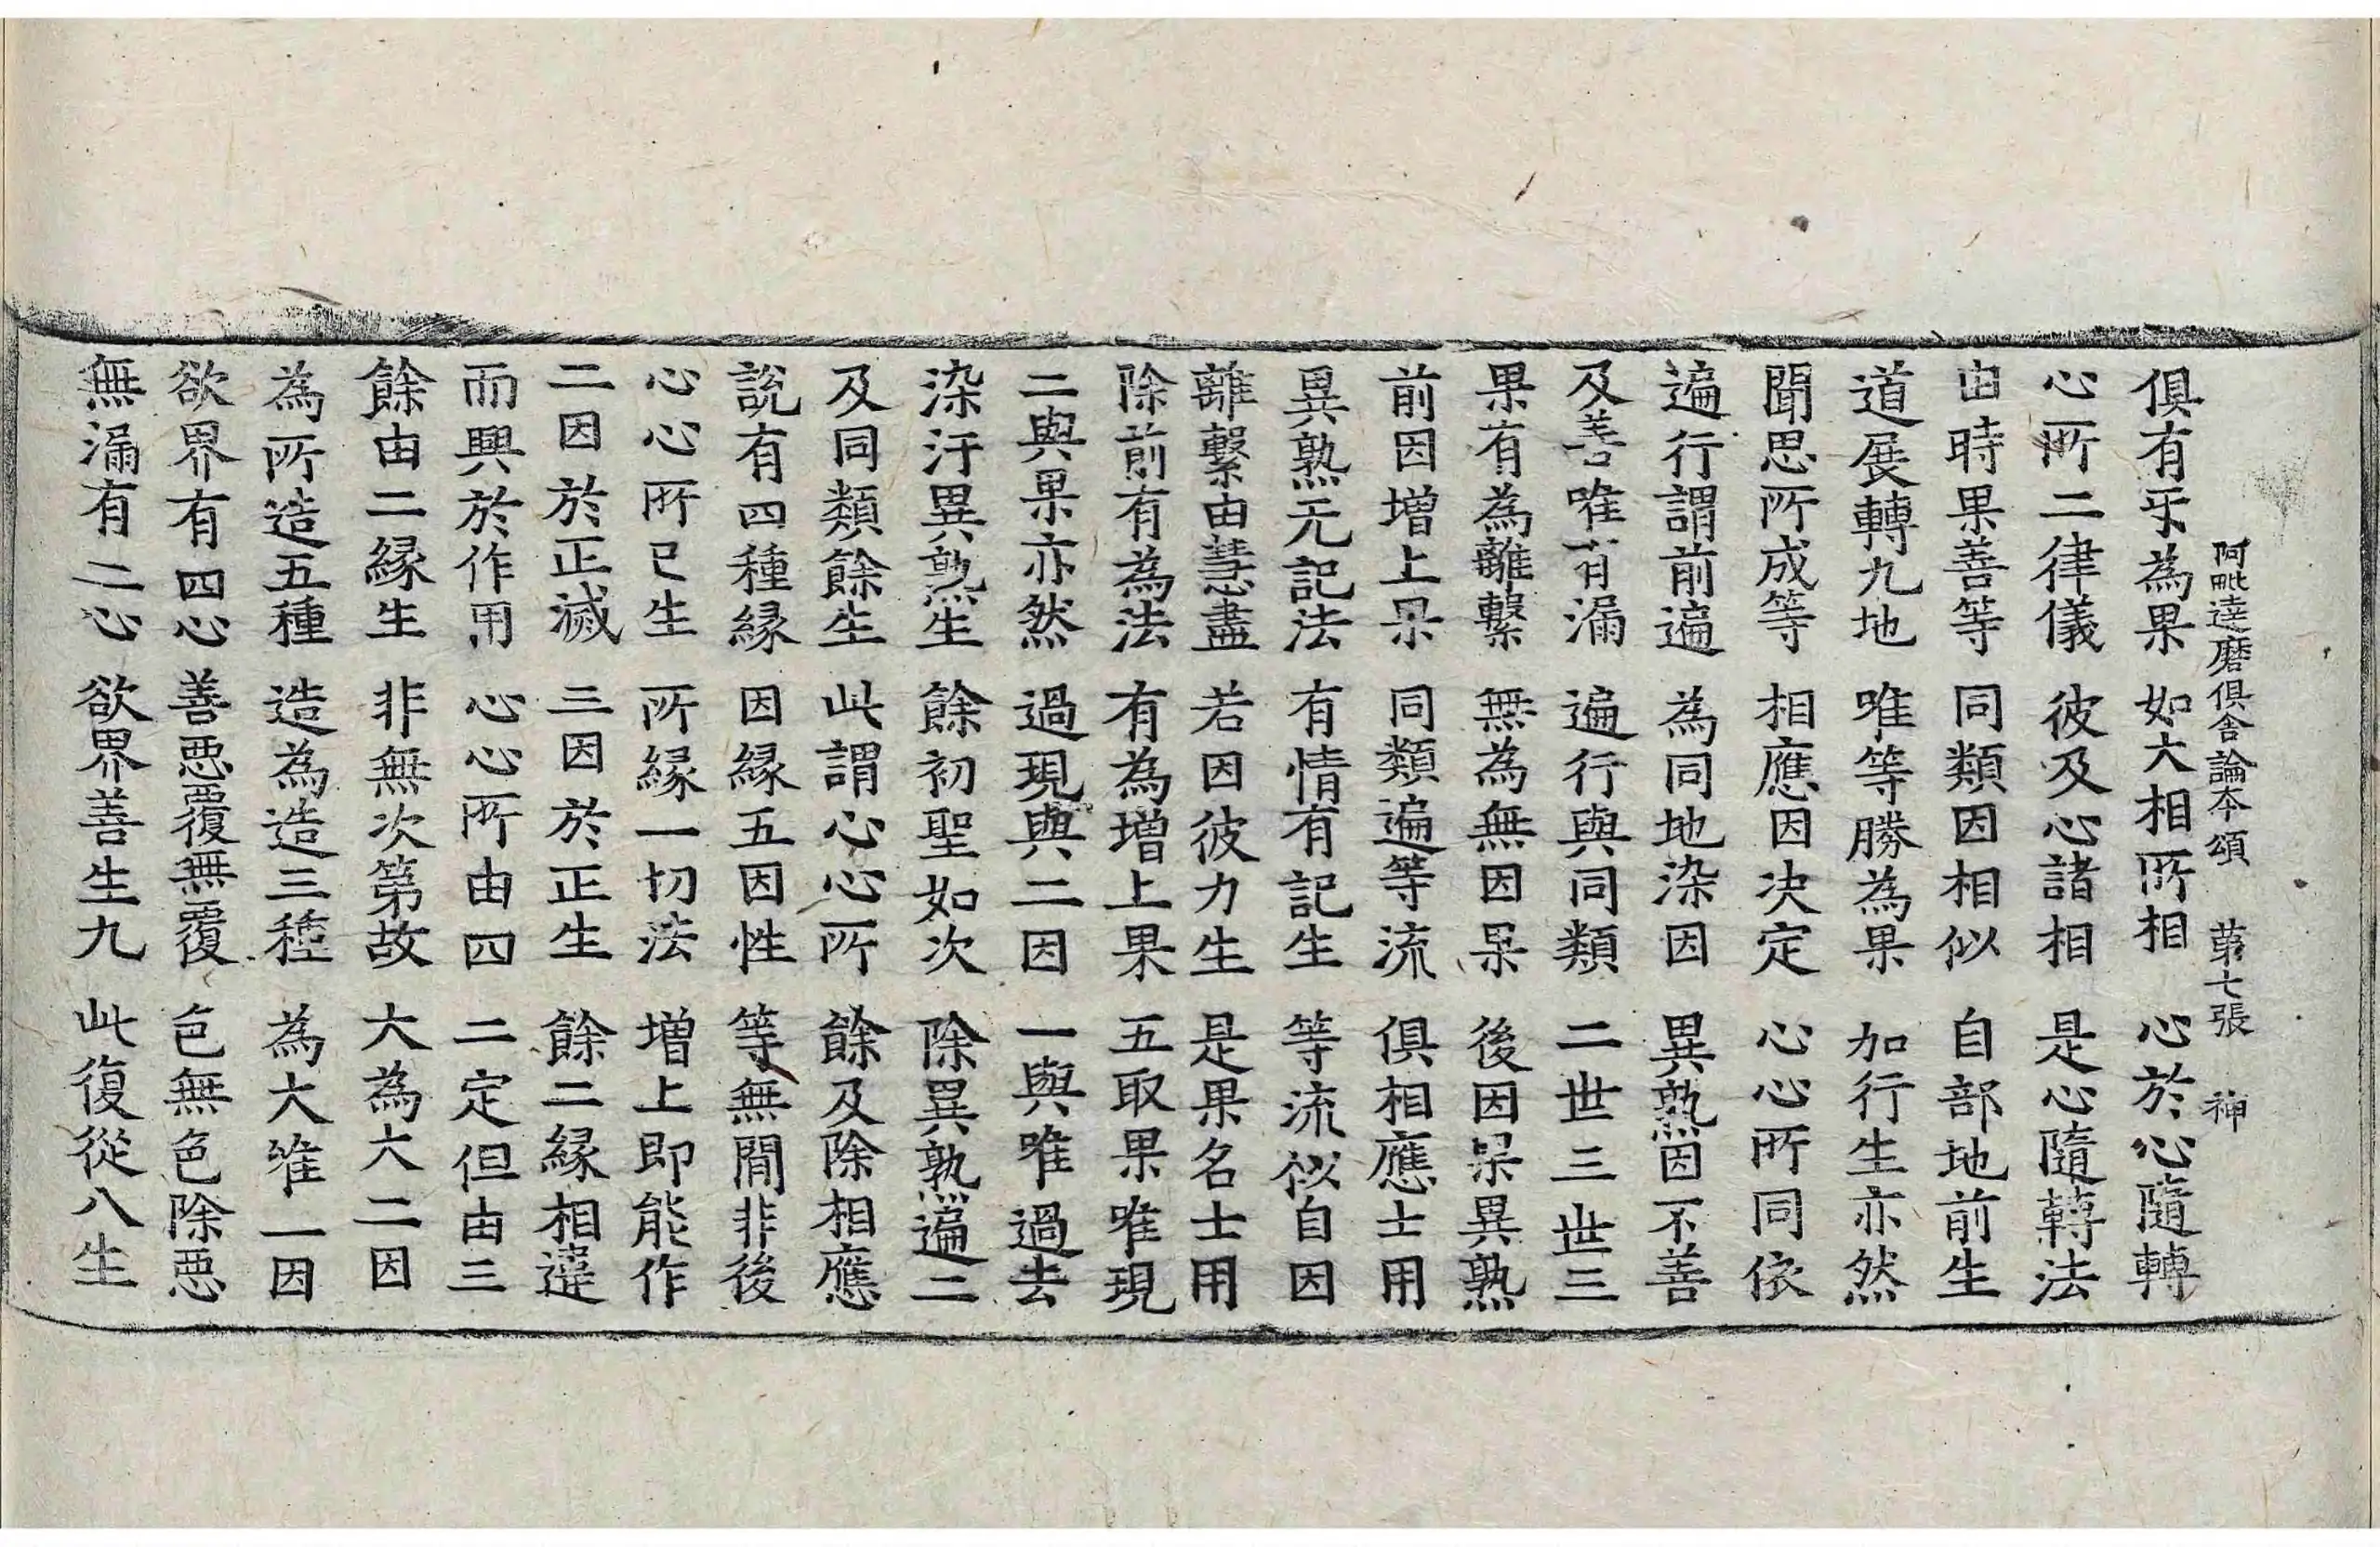 阿毗達磨俱舍論本頌 第七張 神
俱有㸦為果 如大相所相 心於心隨轉
心所二律儀 彼及心諸相 是心隨轉法
由時果善等 同類因相似 自部地前生
道展轉九地 唯等勝為果 加行生亦然
聞思所成等 相應因决定 心心所同依
遍行謂前遍 為同地染因 異熟因不善
及善唯有漏 遍行與同類 二世三世三
果有為離繫 無為無因果 後因果異熟
前因增上果 同類遍等流 俱相應士用
異熟无記法 有情有記生 等流似自因
離繫由慧盡 若因彼力生 是果名士用
除前有為法 有為增上果 五取果唯現
二與果亦然 過現與二因 一與唯過去
染汙異熟生 餘初聖如次 除異熟遍二
及同類餘生 此謂心心所 餘及除相應
說有四種緣 因緣五因性 等無間非後
心心所已生 所緣一切法 增上即能作
二因於正滅 三因於正生 餘二緣相違
而興於作用 心心所由四 二定但由三
餘由二緣生 非無次第故 大為大二因
為所造五種 造為造三種 為大唯一因
欲界有四心 善惡覆無覆 色無色除惡
無漏有二心 欲界善生九 此復從八生